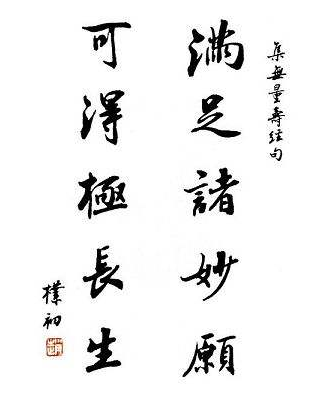 集無量壽経句
滿足諸妙願
可得極長生
樸初